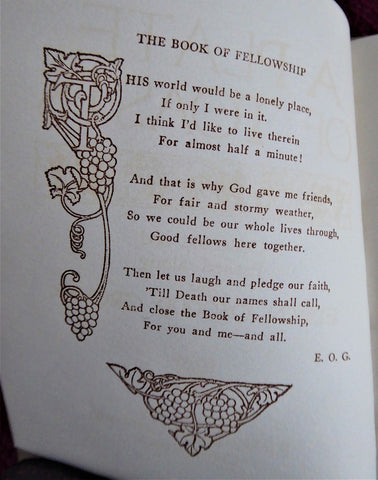 THE BOOK OF FELLOWSHIP
THIS world would be a lonely place,
If only I were in it.
I think I'd like to live therein
For almost half a minute!
And that is why God gave me friends,
For fair and stormy weather,
So we could be our whole lives through,
Good fellows here together.
Then let us laugh and pledge our faith,
'Till Death our names shall call,
And close the Book of Fellowship,
For you and me—and all.
E. O. G.